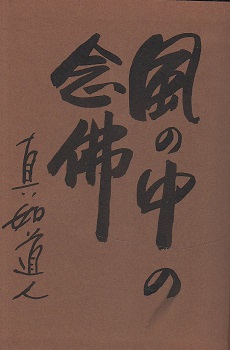 風の中の
念佛
真如道人